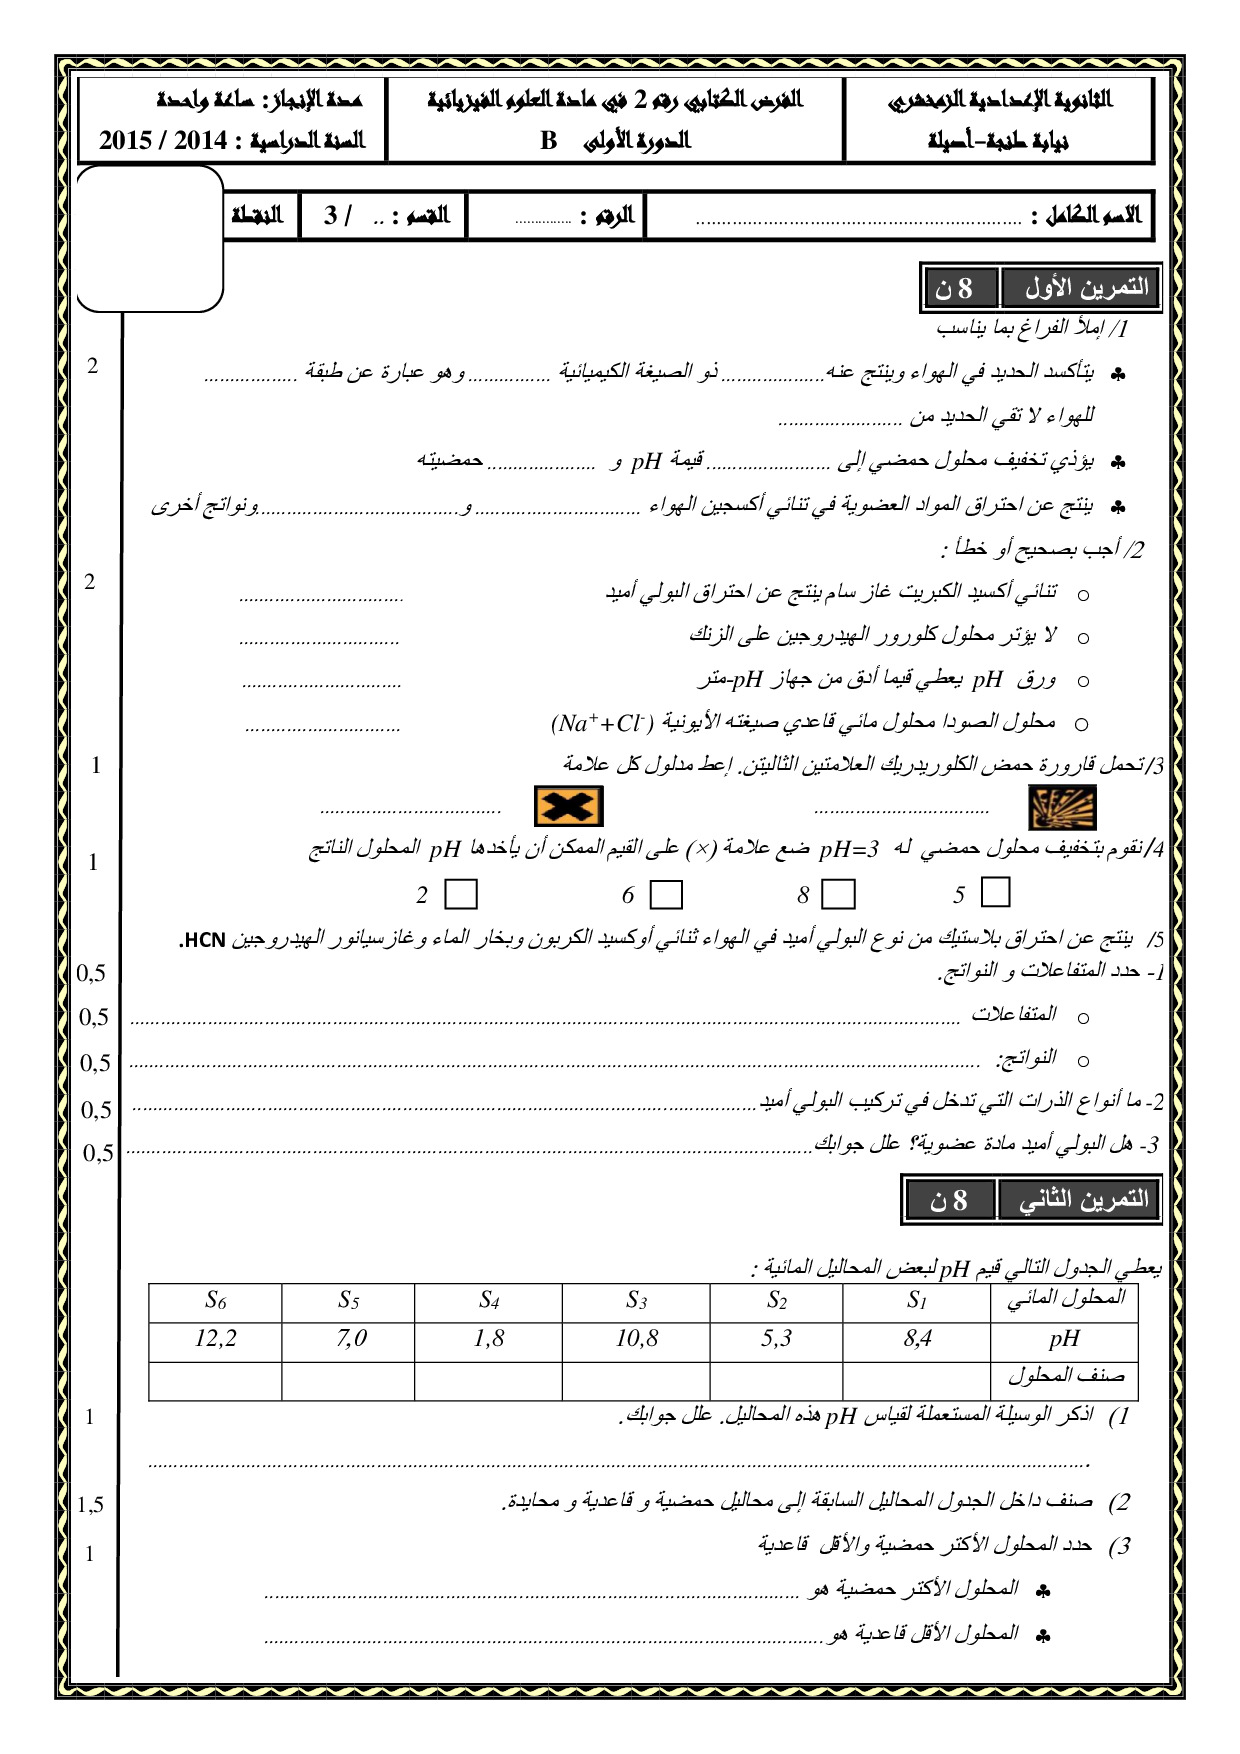 الثانوية الإعدادية الزمخشري
نيابة طنجة-أصيلة
الفرض الكتابي رقم 2 في مادة العلوم الفيزيائية
الدورة الأولى B
مدة الإنجاز: ساعة واحدة
السنة الدراسية : 2014 / 2015
الاسم الكامل : ............................................................
الرقم : ...............
القسم : .. / 3
النقطة
التمرين الأول 8 ن
1/ إملأ الفراغ بما يناسب
2
♣ يتأكسد الحديد في الهواء وينتج عنه.................... ذو الصيغة الكيميائية ................ وهو عبارة عن طبقة ..................
للهواء لا تقي الحديد من ........................
♣ يؤذي تخفيف محلول حمضي إلى ........................ قيمة pH و ..................... حمضيته
♣ ينتج عن احتراق المواد العضوية في تنائي أكسجين الهواء ................................ و.......................................ونواتج أخرى
2/ أجب بصحيح أو خطأ :
2
○ تنائي أكسيد الكبريت غاز سام ينتج عن احتراق البولي أميد ...............................
○ لا يؤتر محلول كلورور الهيدروجين على الزنك ...............................
○ ورق pH يعطي قيما أدق من جهاز pH-متر ...............................
○ محلول الصودا محلول مائي قاعدي صيغته الأيونية (Na⁺+Cl⁻) ..............................
1
3/تحمل قارورة حمض الكلوريدريك العلامتين الثاليتن. إعط مدلول كل علامة
.................................. ...................................
1
4/نقوم بتخفيف محلول حمضي له pH=3 ضع علامة (×) على القيم الممكن أن يأخدها pH المحلول الناتج
5 8 6 2
5/ ينتج عن احتراق بلاستيك من نوع البولي أميد في الهواء ثنائي أوكسيد الكربون وبخار الماء وغازسيانور الهيدروجين HCN.
0,5
1- حدد المتفاعلات و النواتج.
0,5
○ المتفاعلات ................................................................................
0,5
○ النواتج: ................................................................................
0,5
2- ما أنواع الذرات التي تدخل في تركيب البولي أميد................................................................................
0,5
3- هل البولي أميد مادة عضوية؟ علل جوابك................................................................................
التمرين الثاني 8 ن
يعطي الجدول التالي قيم pH لبعض المحاليل المائية :
المحلول المائي S1 S2 S3 S4 S5 S6
pH 8,4 5,3 10,8 1,8 7,0 12,2
صنف المحلول
1
1) اذكر الوسيلة المستعملة لقياس pH هذه المحاليل. علل جوابك.
................................................................................
1,5
2) صنف داخل الجدول المحاليل السابقة إلى محاليل حمضية و قاعدية و محايدة.
1
3) حدد المحلول الأكتر حمضية والأقل قاعدية
♣ المحلول الأكتر حمضية هو ................................................................................
♣ المحلول الأقل قاعدية هو ................................................................................